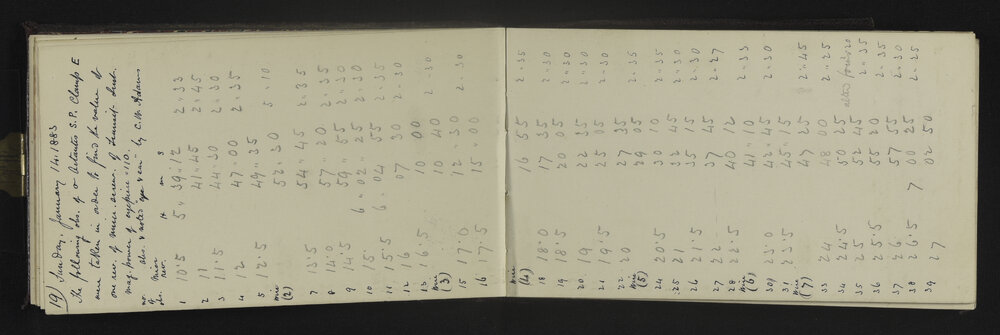 19) Sunday, January 14. 1883
The following obs. of σ Octantis S.P. Clamp E
were taken in order to find the value of
one rev. of micr. screw of Transit Inst.
mag. power of eyepiece 110.
obs. & noted by C.W. Adams
no. of obs. Micr rev. H m s
1 10.5 5 39 12 2 33
2 11 41 45 2 45
3 11.5 44 30 2 30
4 12 47 00 2 35
5 12.5 49 35
(2) 52 20 5 10
7 13.5 54 45 2 35
8 14.0 57 20 2 35
9 14.5 59 55 2 30
10 15 6 02 25 2 30
11 15.5 6 04 55 2 35
12 16 07 30 2 30
13 16.5 10 00
(3) 10 40 2 30
15 17.0 12 30 2 30
16 17.5 15 00
(4) 16 55 2 35
18 18.0 17 35 2 30
19 18.5 20 05 2 30
20 19 22 35 2 30
21 19.5 25 05 2 30
22 20 27 35
(5) 29 05 2 35
24 20.5 30 10 2 35
25 21 32 45 2 30
26 21.5 35 15 2 30
27 22 37 45 2 27
28 22.5 40 12
(6) 41 10 2 33
30 23.0 42 45 2 30
31 23.5 45 15
(7) 47 25 2 45
33 24 48 00 2 25
34 24.5 50 25
35 25 52 45 2 35
36 25.5 55 20 2 35
37 26 57 55 2 30
38 26.5 7 00 25 2 25
39 27 02 50